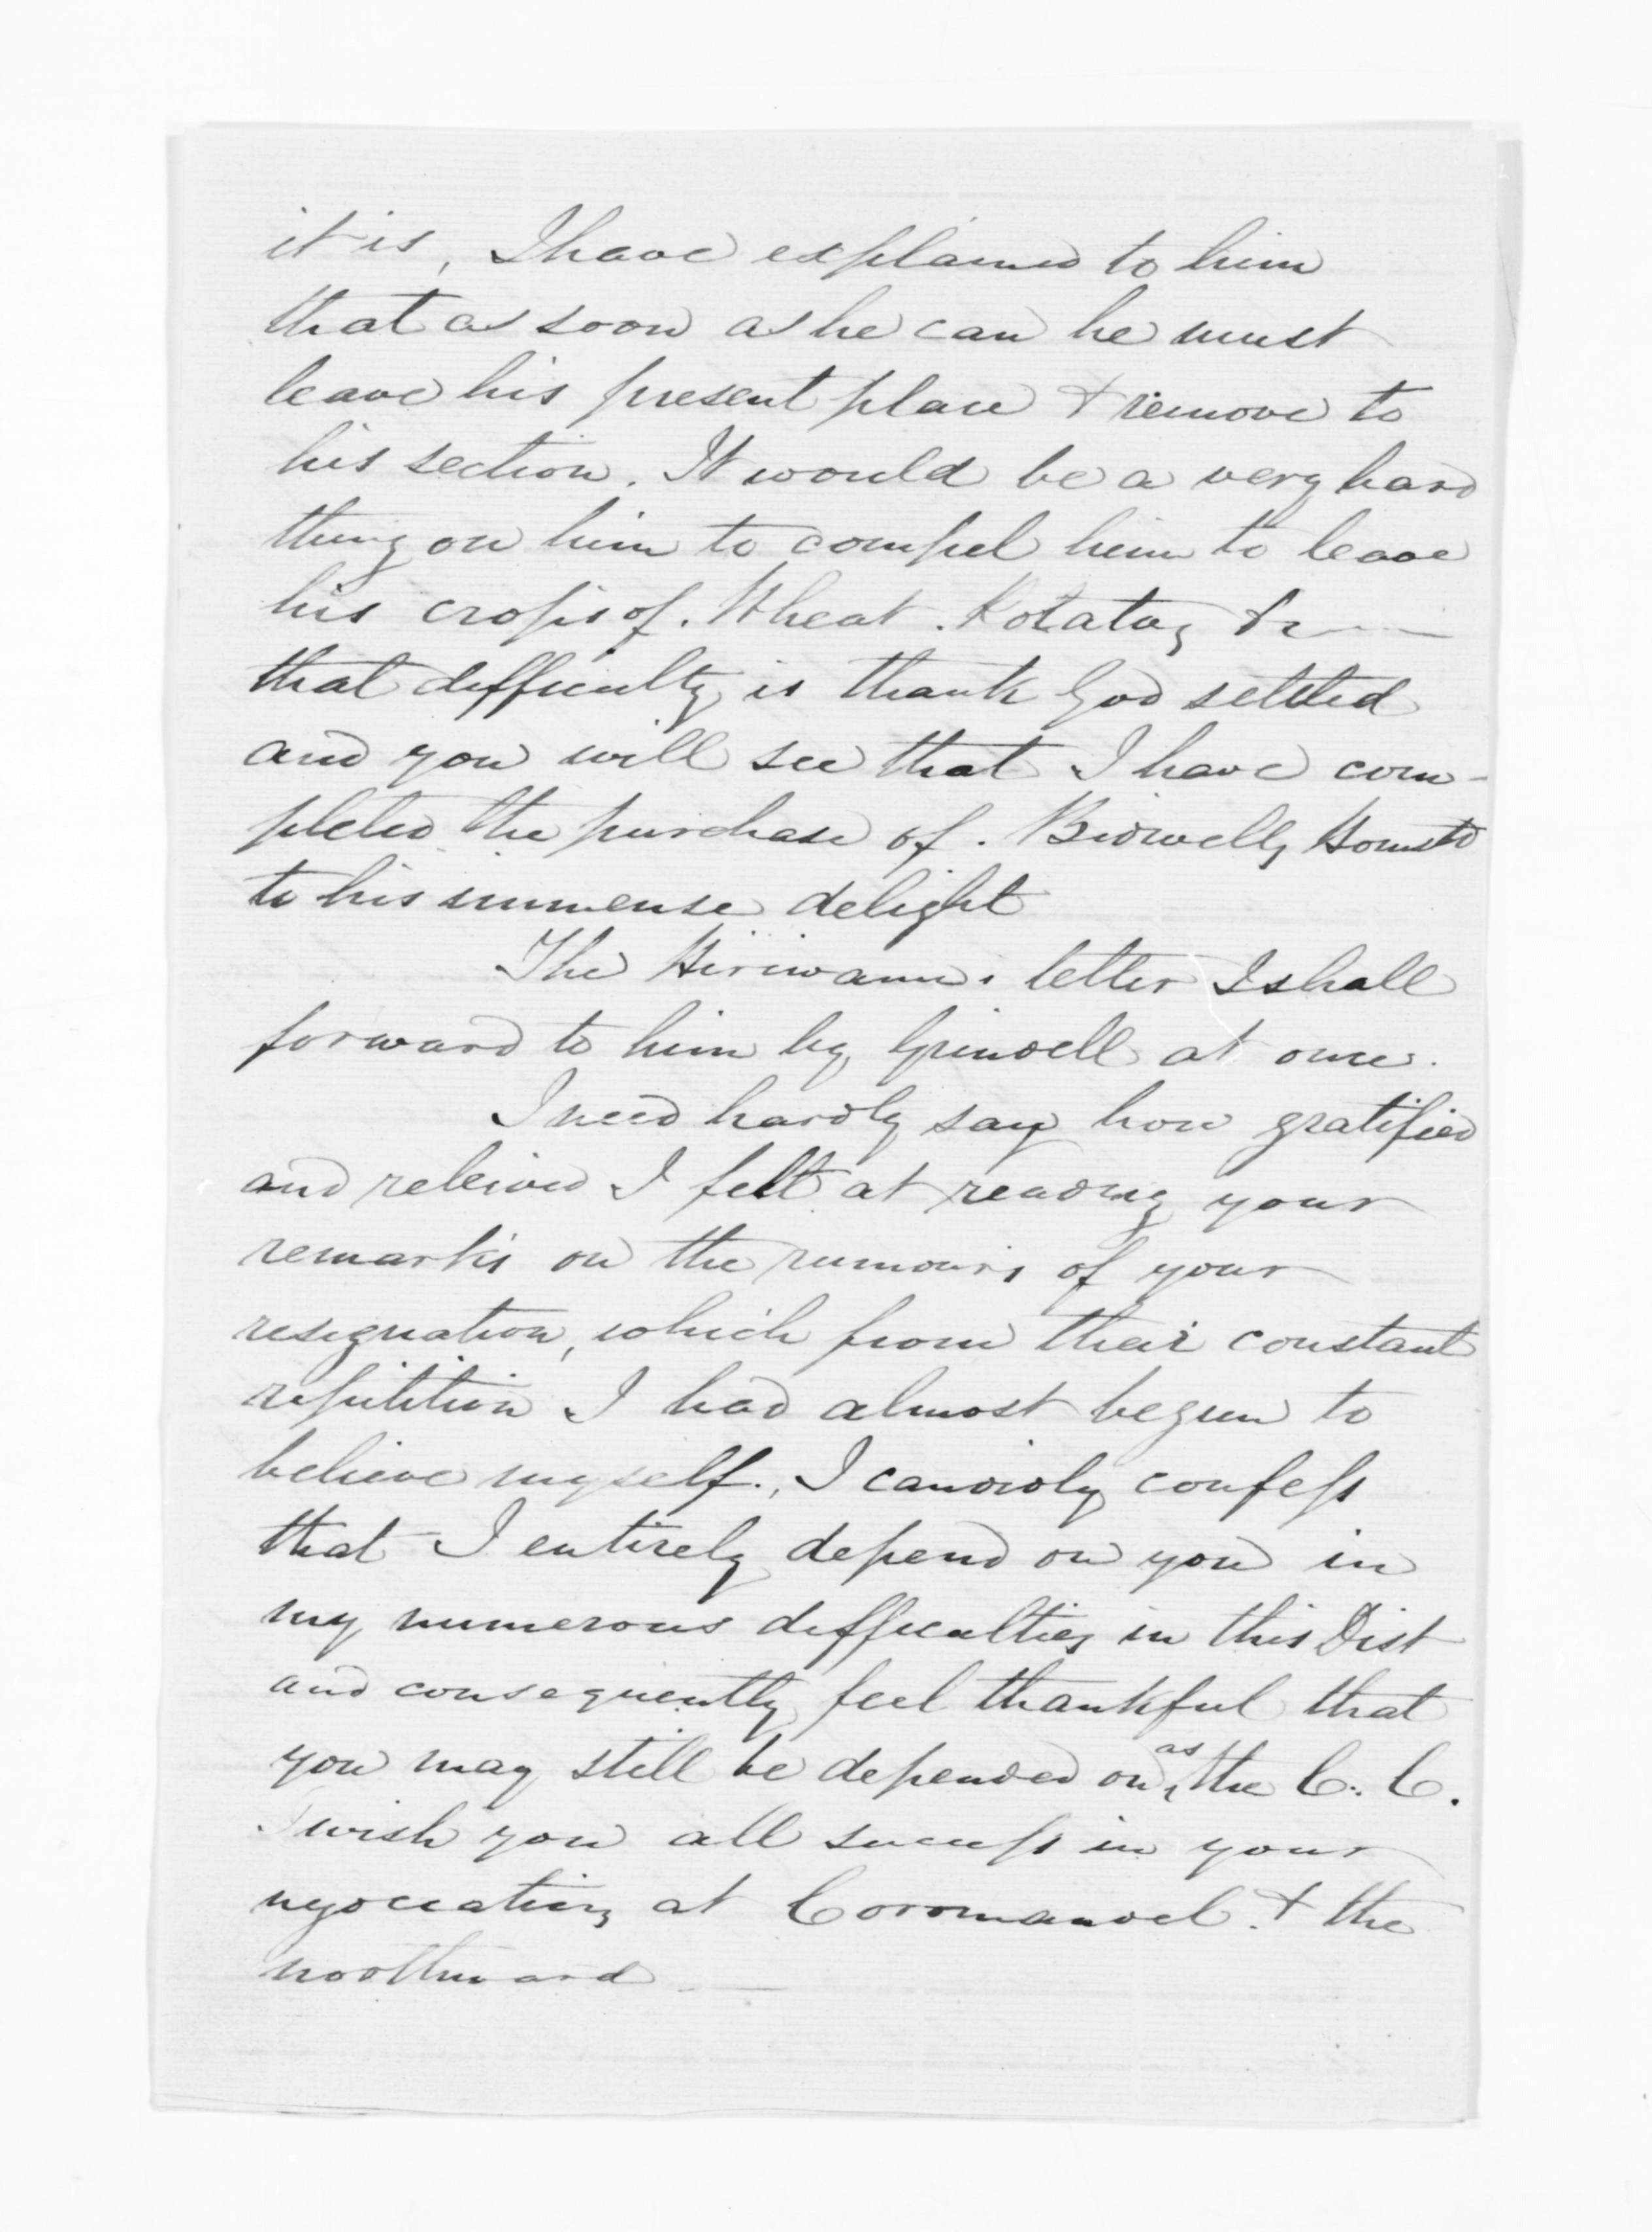 it is, I have explained to him
that as soon as he can he must
leave his present place & remove to
his section. It would be a very hard
thing on him to compel him to leave
his crops of. Wheat. Potatoes &c
that difficulty is thank God settled
and you will see that I have com-
pleted the purchase of. Bidwells Homestd
to his immense delight
The Hiriwanu. letter I shall
forward to him by Grindell at once.
I need hardly say how gratified
and releived I felt at reading your
remarks on the rumours of your
resignation, which from their constant
repitition I had almost begun to
believe myself., I candidly confess
that I entirely depend on you in
my numerous difficulties in this Dist
and consequently feel thankful that
you may still be depended on as the C. C.
I wish you all success in your
negociations at Corromandel. & the
northward